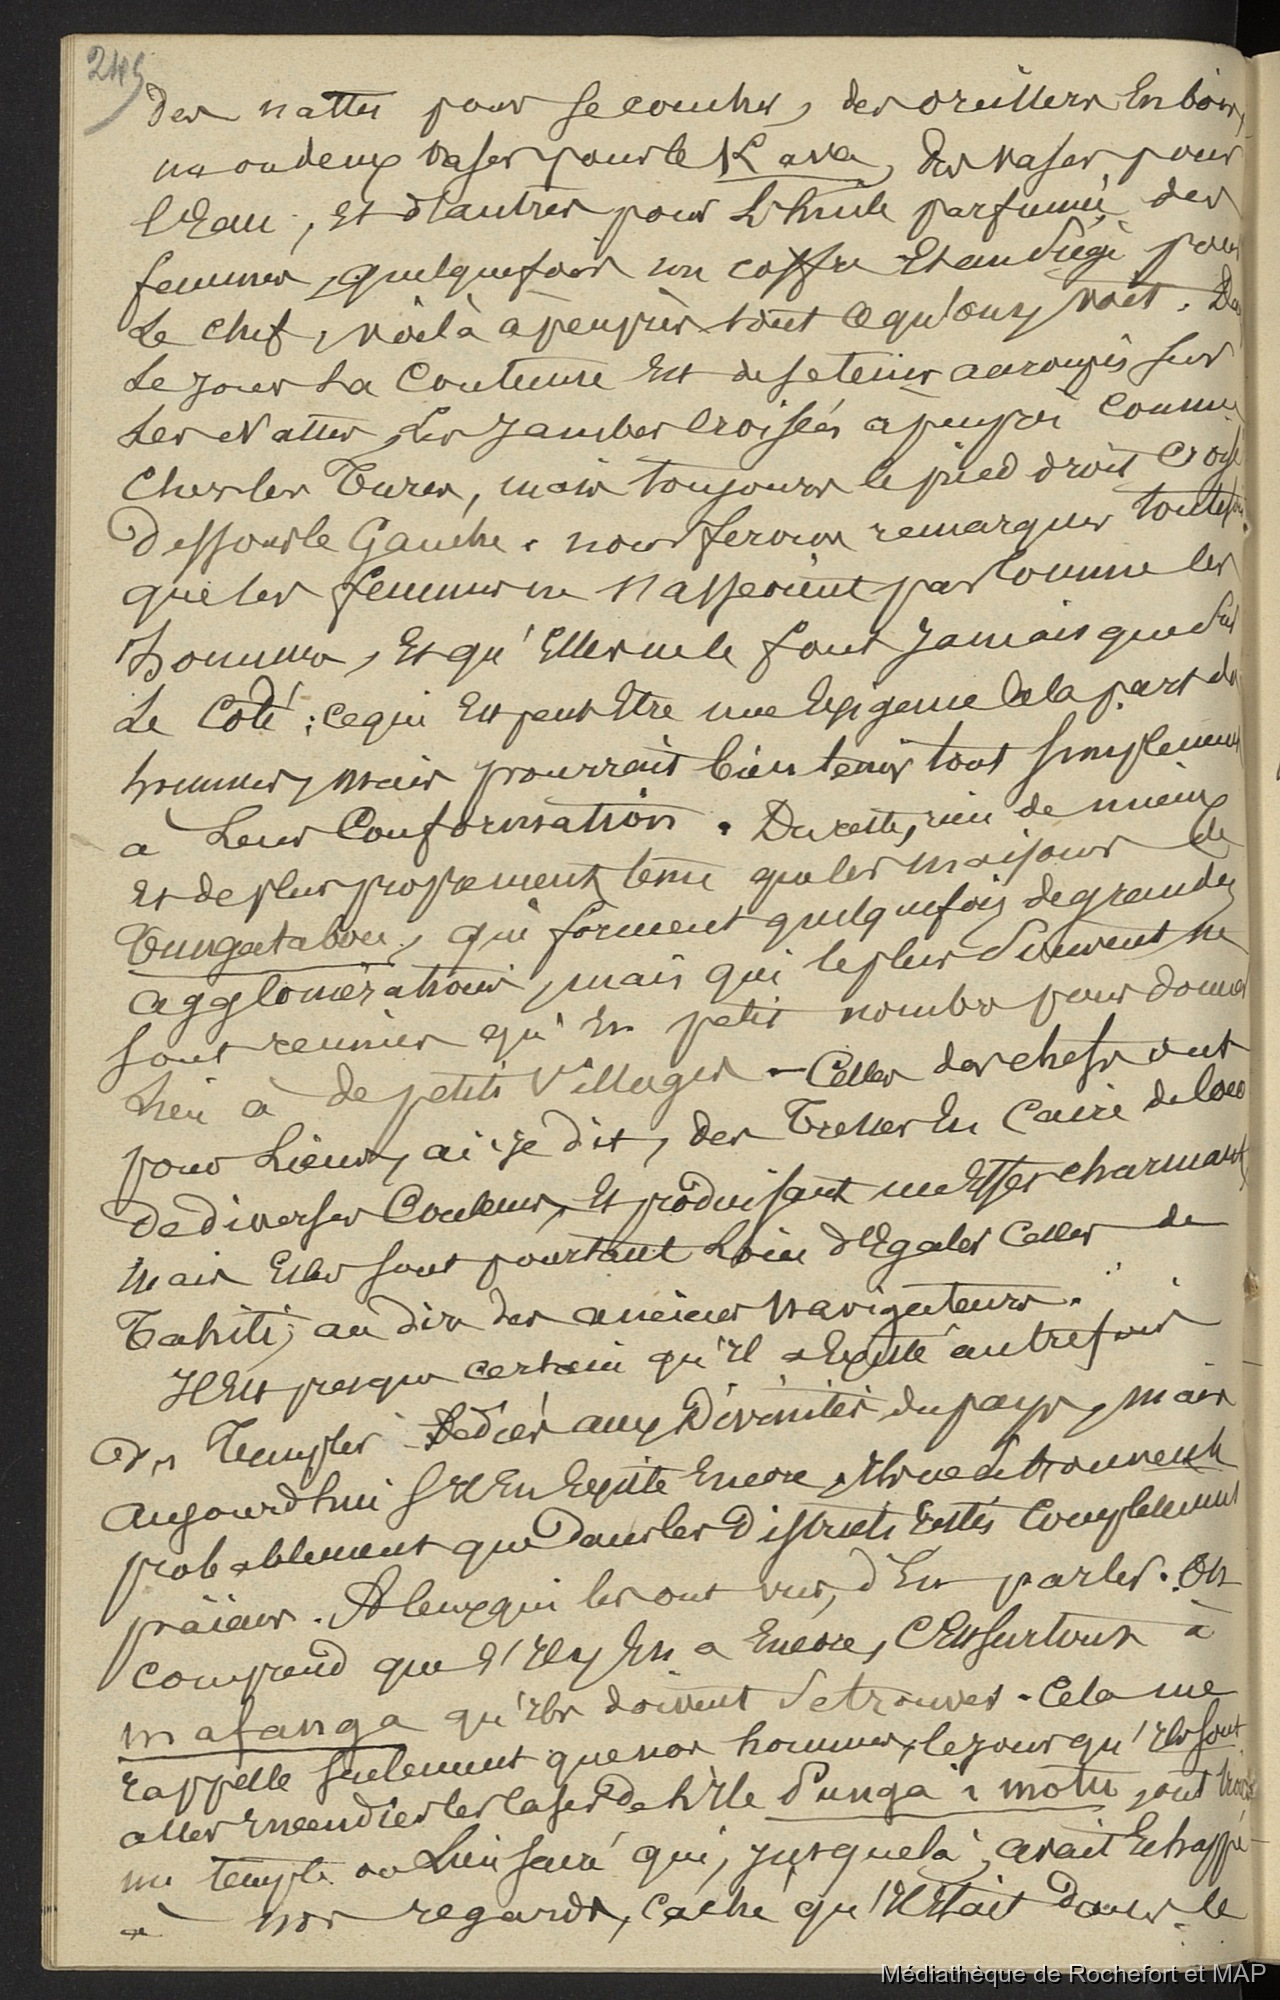 245
des nattes pour se coucher, des oreillers en bois,
un ou deux vases pour le Kava, des vases pour
l'Eau, et d'autres pour l'huile parfumée des
femmes, quelquefois un coffre et un siège pour
le chef, voilà à peu près tout ce qu'on y voit. Dans
le jour la coutume est de se tenir accroupis sur
les nattes, les jambes croisées à peu près comme
chez les Turcs, mais toujours le pied droit croisé
dessous le Gauche. nous ferons remarquer toutefois
que les femmes ne s'asseoient pas comme les
hommes, et qu'Elles ne le font jamais que sur
le Coté; ce qui est peut Etre une Exigence de la part des
hommes, mais pourrait bien tenir tout simplement
à leur Conformation. Du reste, rien de mieux
et de plus proprement tenu que les maisons de
Tungatabou, qui forment quelquefois de grandes
agglomérations, mais qui le plus souvent ne
sont réunies qu'en petit nombre pour donner
lieu à de petits villages - Celles des chefs ont
pour Liens, ai-je dit, des Tresses en Caire de Coco
de diverses Couleurs, et produisant un Effet charmant,
mais Elles sont pourtant Loin d'Egaler Celles de
Tahiti, au dire des anciens navigateurs.
Il Est presque certain qu'il a Existé autrefois
des Temples dédiés aux Divinités du pays, mais
aujourd'hui s'Il En Existe Encore, Ils ne se trouvent
probablement que dans les Districts restés Complètement
païens. A Ceux qui les ont vus, d'En parler. On
comprend que s'Il y En a Encore, C'Est surtout à
mafanga qu'Ils doivent se trouver. Cela me
rappelle seulement que nos hommes, le jour qu'Ils sont
aller incendier les cases de l'Ile Punga i motu, ont trouvé
un temple ou Lieu sacré qui, jusque là, avait Echappé
à nos regards, caché qu'Il Etait dans le
Médiathèque de Rochefort et MAP